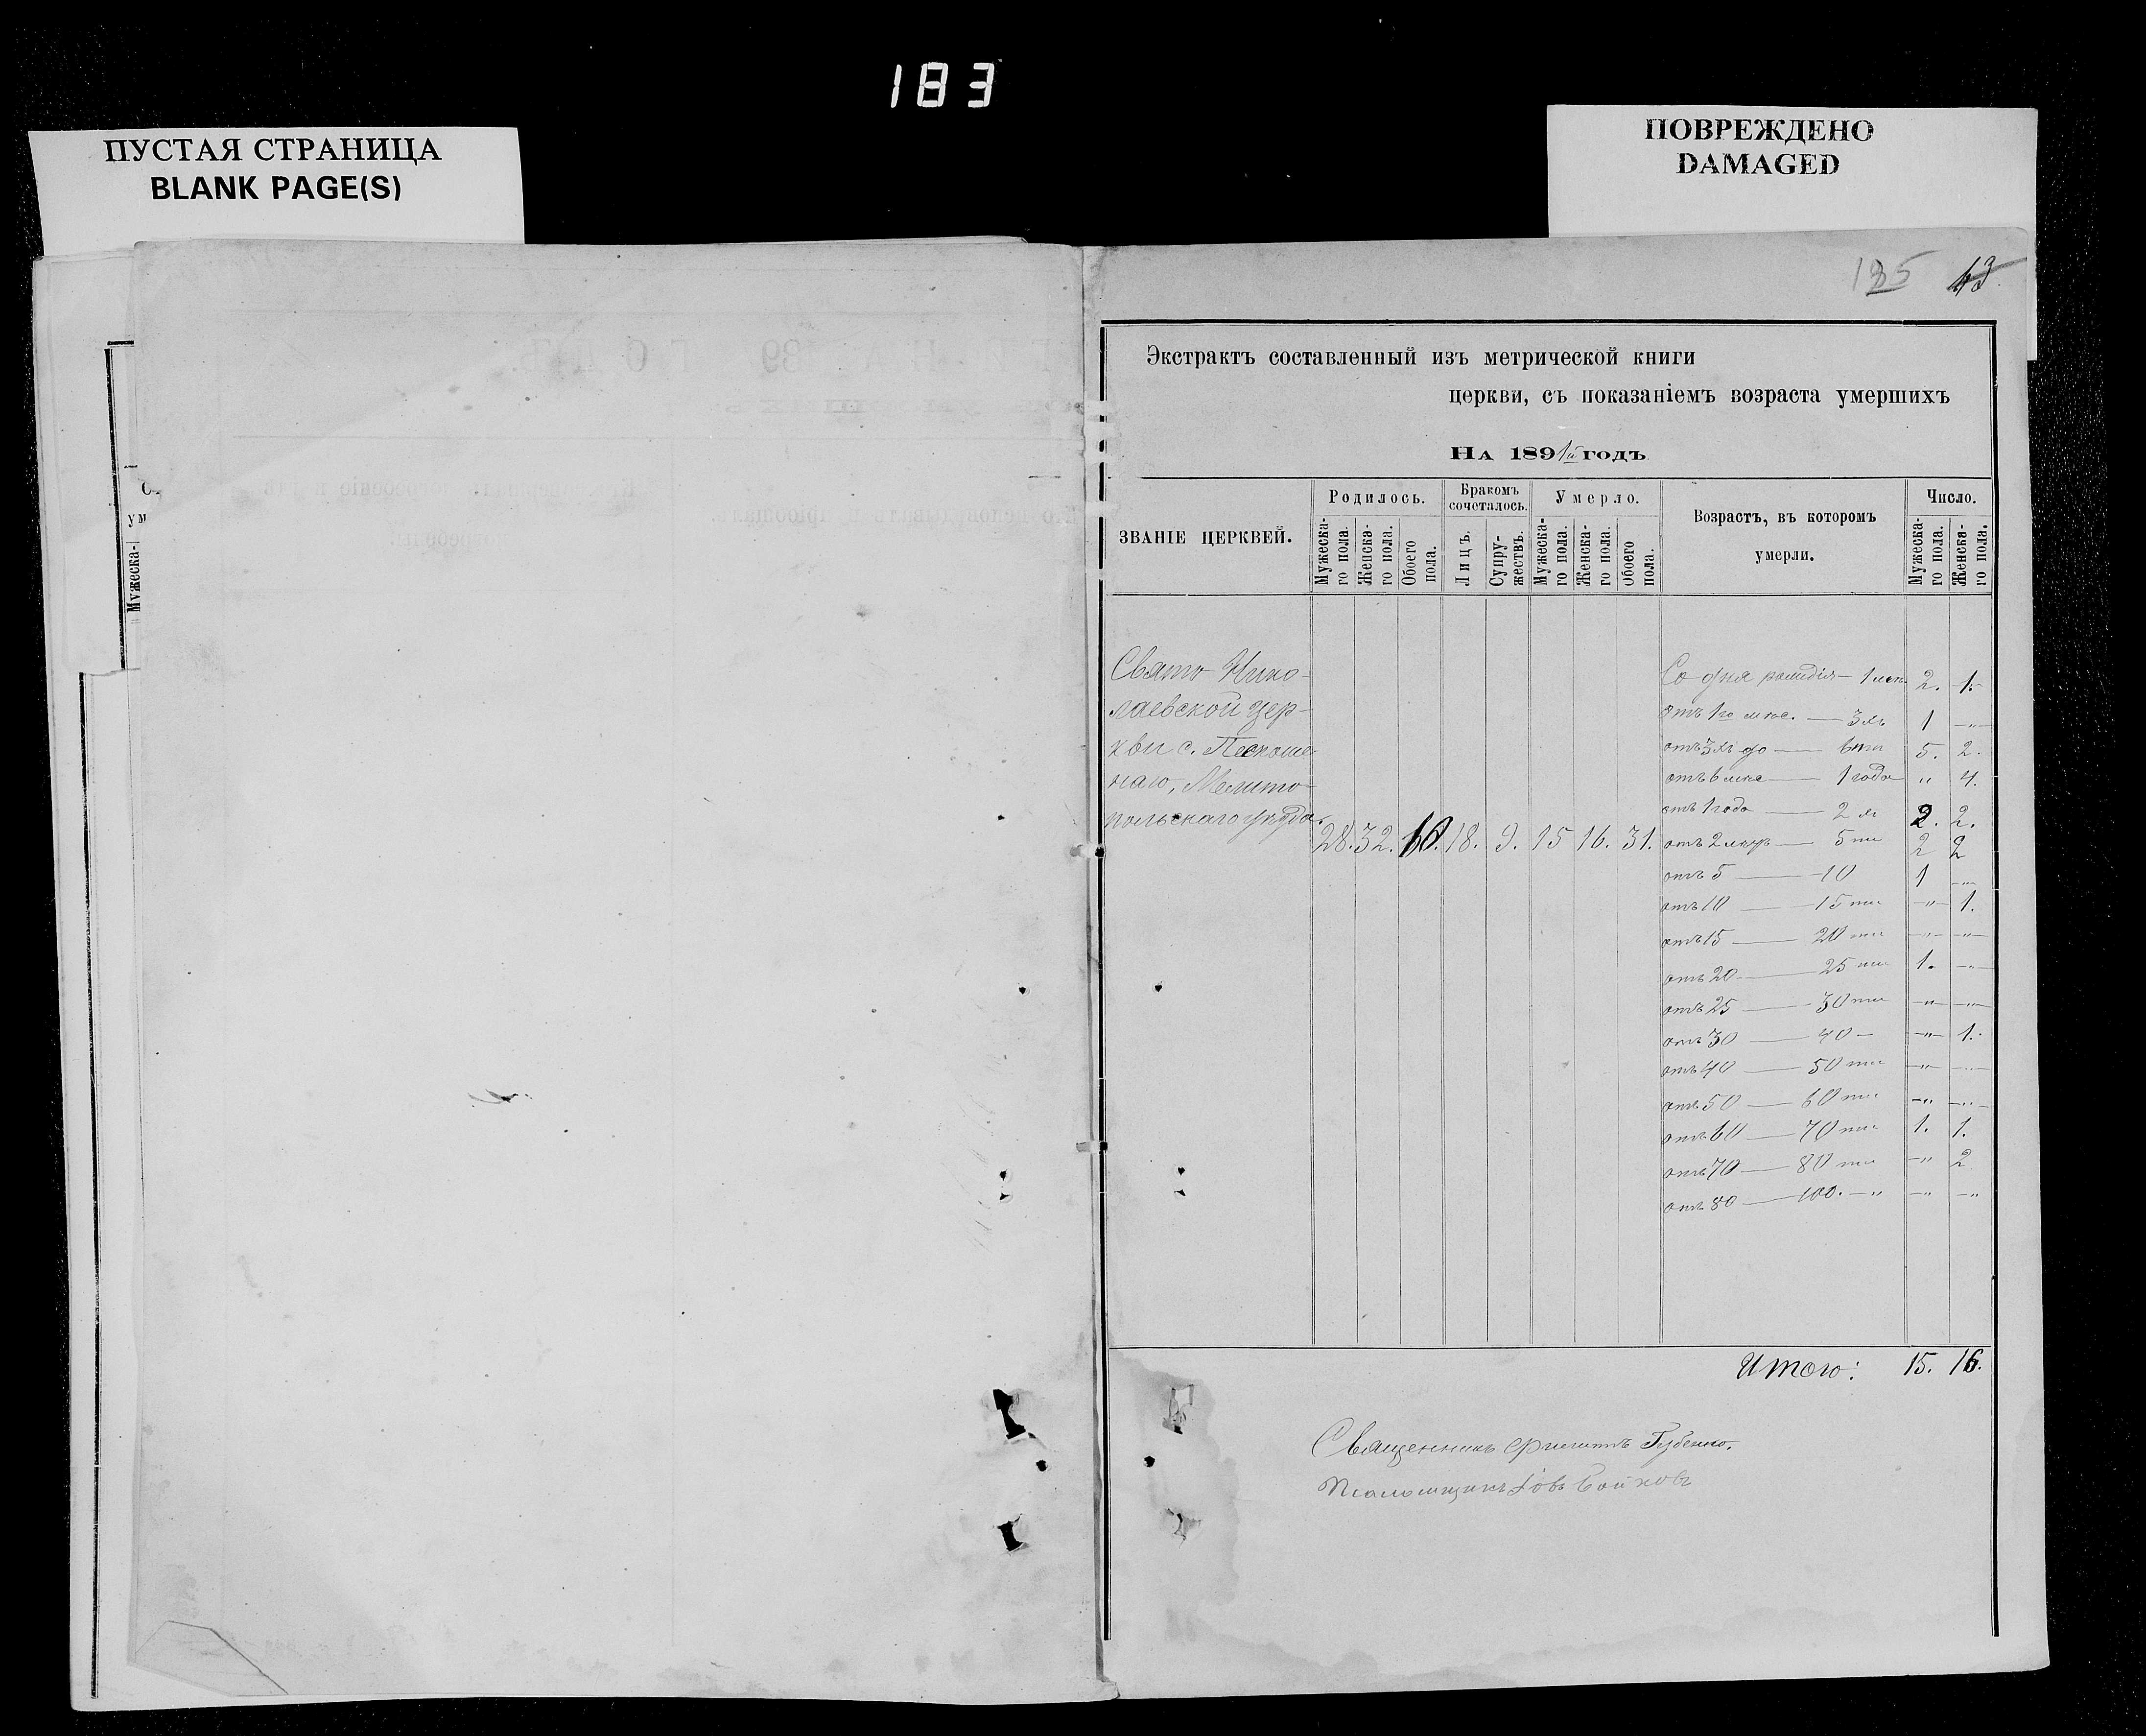 183
ПУСТАЯ СТРАНИЦА
BLANK PAGE(S)
ПОВРЕЖДЕНО
DAMAGED
185 43
Экстрактъ составленный изъ метрической книги
церкви, съ показаніемъ возраста умершихъ
На 1891й годъ
ЗВАНІЕ ЦЕРКВЕЙ.
Родилось.
Мужеска-
го пола.
Женска-
го пола.
Обоего
пола.
Бракомъ
сочеталось.
Лицъ.
Супру-
жествъ.
Умерло.
Мужеска-
го пола.
Женска-
го пола.
Обоего
пола.
Возрастъ, въ которомъ
умерли.
Число.
Мужеска-
го пола.
Женска-
го пола.
Свято Нико-
лаевской цер-
кви с.
наго, Мелито-
польскаго уѣзда.
28. 32. 60. 18. 9. 15 16. 31.
Со дня — 1 2. 1.
отъ 1го — 3хъ 1 — „
отъ 3хъ до — 6ти 5. 2.
отъ 6 — 1 года „ 4.
отъ 1 года — 2 хъ 2. 2.
отъ 2 — 5 ти 2 2
отъ 5 — 10 1 — „
отъ 10 — 15 ти — „ 1.
отъ 15 — 20 ти — „ — „
отъ 20 — 25 ти 1. — „
отъ 25 — 30 ти — „ — „
отъ 30 — 40 — — „ 1.
отъ 40 — 50 ти — „ — „
отъ 50 — 60 ти — „ — „
отъ 60 — 70 ти 1. 1.
отъ 70 — 80 ти — „ 2
отъ 80 — 100. — „ — „ — „
Итого: 15. 16.
Священникъ Губенко.
Псаломщикъ Іовъ Бойковъ
С.
ум
Мужеска-